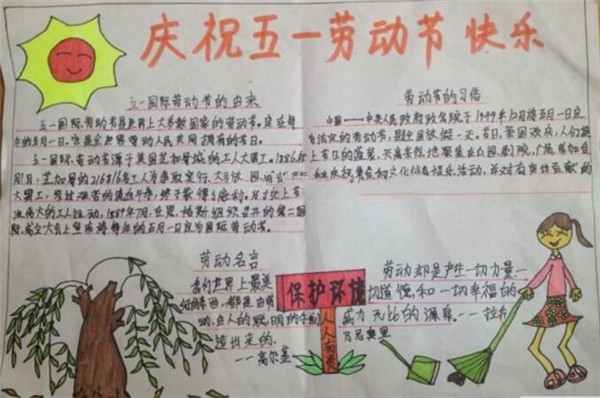 庆祝五一劳动节快乐
五一国际劳动节的由来
五一国际劳动节是世界上大多数国家的劳动节。定在每
年的五月一日。它是全世界劳动人民共同拥有的节日。
五一国际劳动节源于美国芝加哥城的工人大罢工。1886年5
月1日,芝加哥的216816名工人为争取实行
大罢工,
伟大的工人运动,1889年7月,
际,成立大会上宣布将每年的五月一日定为国际劳动节。
劳动节的习俗
中国——中央人民政府政务院于1949年12月将五月一日定
为法定的劳动节,
上节日的盛装,兴高采烈地聚集在公园,剧院,广场,参加各
种庆祝集会和文化体育娱乐活动,并对有突出贡献的
劳动名言
我们世界上最美
好的东西,都是由劳
动、由人的聪明的手创
造出来的。
——高尔基
保护环境
人人有责
劳动却是产生一切力量、一
切道德,和一切幸福的
威力无比的源泉。——拉夫
乃尼奥里